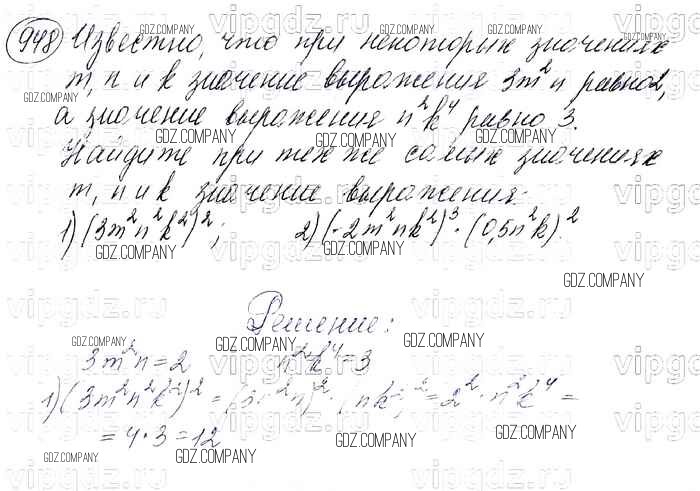 948 Известно, что при некоторых значениях
m, n и k значение выражения 3m²n равно 2,
а значение выражения n²k⁴ равно 3.
Найдите при тех же самых значениях
m, n и k значение выражения:
1) (3m²n²k²)²; 2) (-2m²nk²)³·(0,5n²k)².
Решение:
3m²n = 2 n²k⁴ = 3
1) (3m²n²k²)² = (3m²n)²·(nk²)² = 2²·n²k⁴ =
= 4·3 = 12